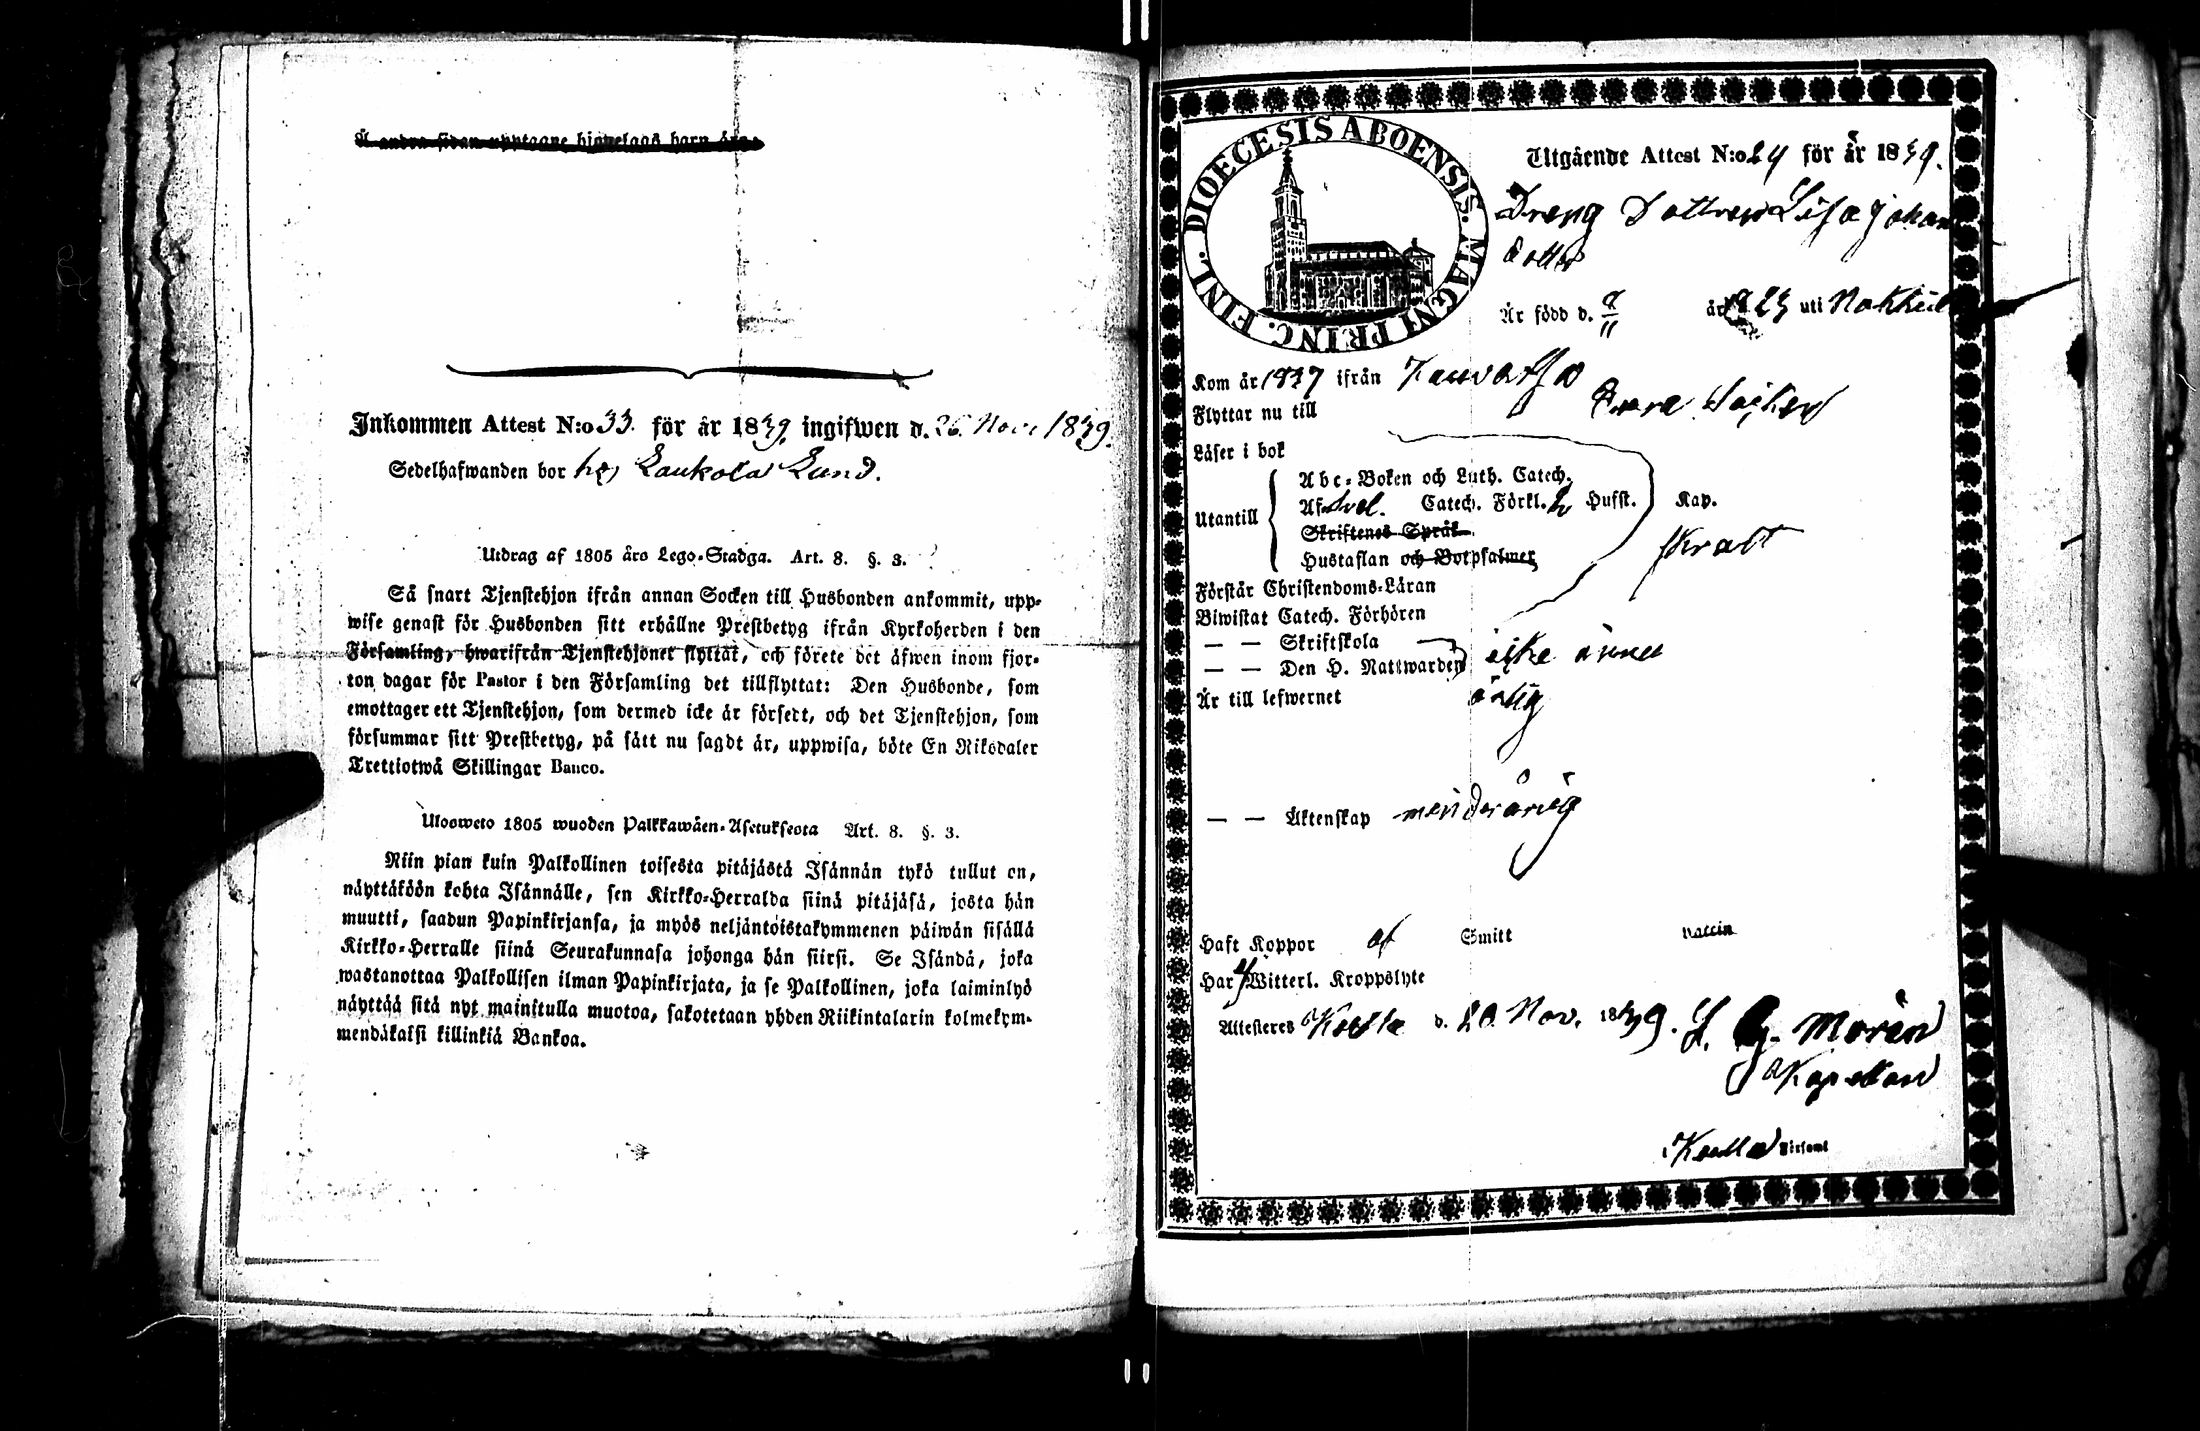 Å andra sidan upptagne hjonelags barn äro:
Inkommen Attest N:o 33. för år 1839. ingifwen d. 26. Nov. 1839.
Sedelhafwanden bor hos Laukola Lund.
Utdrag af 1805 års Lego-Stadga. Art. 8. §. 3.
Så snart Tjenstehjon ifrån annan Socken till Husbonden ankommit, upp-
wise genast för Husbonden sitt erhållne Prestbetyg ifrån Kyrkoherden i den
Församling, hwarifrån Tjenstehjonet flyttat, och förete det äfwen inom fjor-
ton dagar för Pastor i den Församling det tillflyttat: Den Husbonde, som
emottager ett Tjenstehjon, som dermed icke är försedt, och det Tjenstehjon, som
försummar sitt Prestbetyg, på sätt nu sagdt är, uppwisa, böte En Riksdaler
Trettiotwå Skillingar Banco.
Ulosweto 1805 wuoden Palkkawäen-Asetuksesta Art. 8. §. 3.
Niin pian kuin Palkollinen toisesta pitäjästä Isännän tykö tullut on,
näyttäköön kohta Isännälle, sen Kirkko-Herralda siinä pitäjäsä, josta hän
muutti, saadun Papinkirjansa, ja myös neljäntoistakymmenen päiwän sisällä
Kirkko-Herralle siinä Seurakunnasa johonga hän siirsi. Se Isändä, joka
wastanottaa Palkollisen ilman Papinkirjata, ja se Palkollinen, joka laiminlyö
näyttää sitä nyt mainitulla muotoa, sakotetaan yhden Riikintalarin kolmekym-
mendäkaksi killinkiä Bankoa.
DIOECESIS ABOENSIS. MAGNI PRINC. FINL.
Utgående Attest N:o 24 för år 1839.
Dreng Dottren Lisa Johans
dotter
Är född d. 9/11 år 1823 uti Nokkila
Kom år 1837 ifrån
Flyttar nu till Socken
Läser i bok
Utantill
Abc-Boken och Luth. Catech.
Af Svel. Catech. Förkl. 2 Hufst. Kap.
Skriftenes Språk
Hustaflan och Botpsalmer
svalt
Förstår Christendoms-Läran
Biwistat Catech. Förhören
— — Skriftskola
— — Den H. Nattwarden icke ännu
Är till lefwernet ärlig
— — Äktenskap minderårig
Haft Koppor af Smitt Vaccin
Har ej Witterl. Kroppslyte
Attesteres d. 20. Nov. 1839. J. G. Morén
Kapellan
i Församl